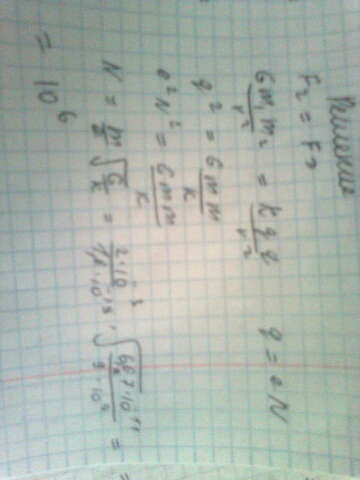 Решение
F₂ = F₃
G m₁ m₂ / r² = k q q / r²    q = eN
q² = G m m / k
e² N² = G m m / k
N = m/e √(G/k) = 2·10⁻³ / 1,6·10⁻¹⁹ · √(6,67·10⁻¹¹ / 9·10⁹) =
= 10⁶